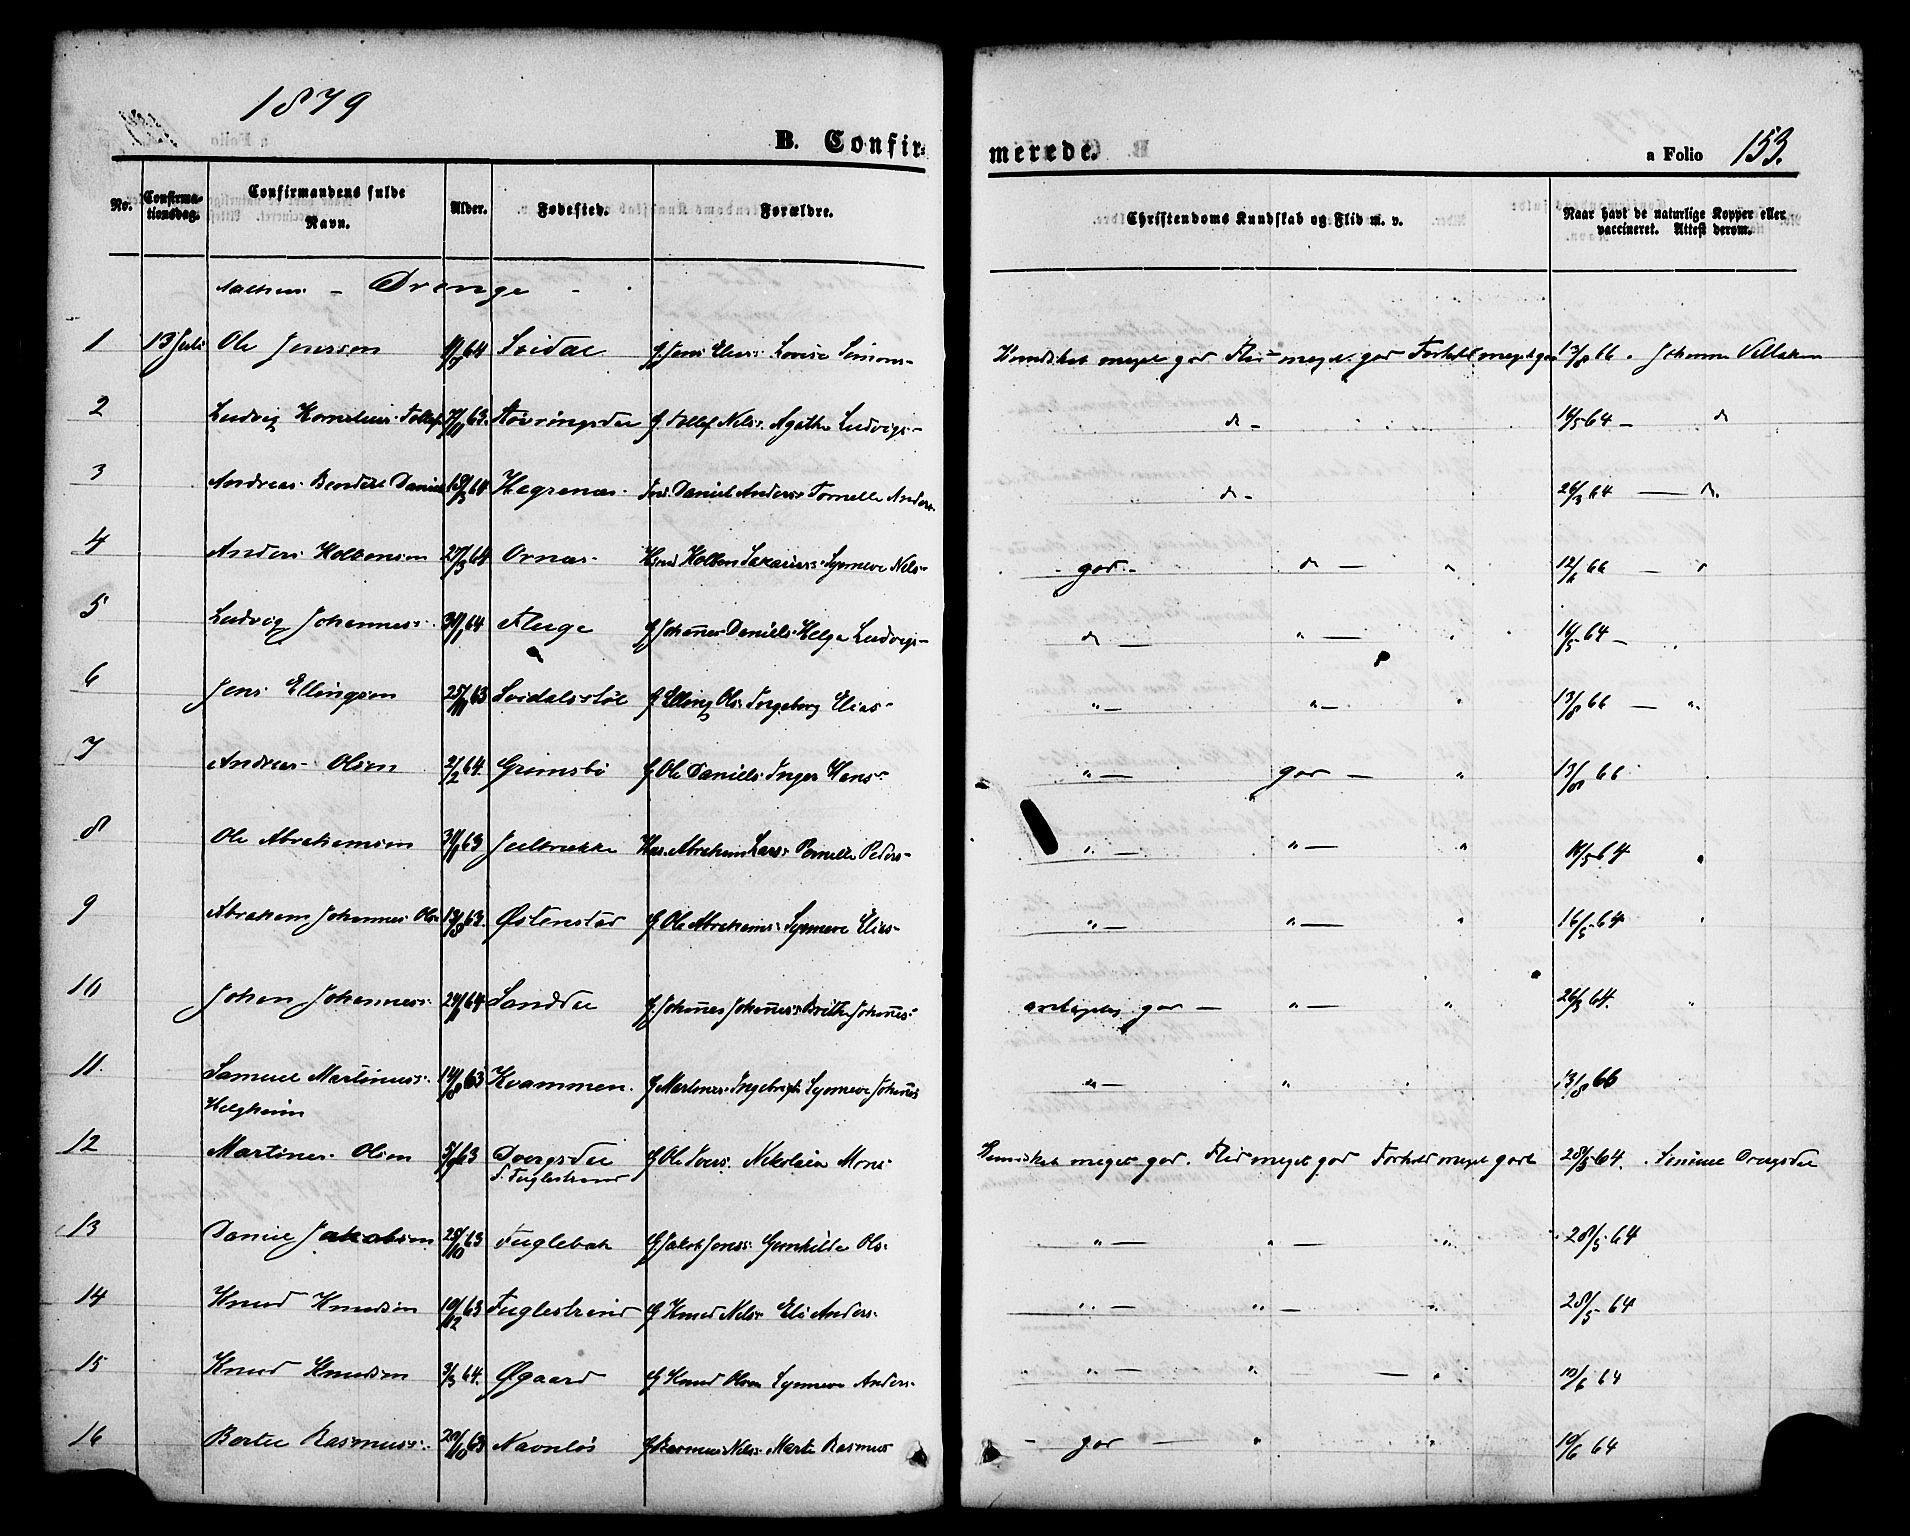 1879
B. Confir-
merede.
a Folio 153.
No.
Confirma-
tionsdag.
Confirmandens fulde
Navn.
Alder.
Fødested.
Forældre.
Christendoms Kundskab og Flid m. v.
Naar havt de naturlige Kopper eller
vaccineret. Attest derom.
Drenge
1 13 Juli Ole Jensson 64 Svidal G. Jens Elias: Lovise Simons- Kundskab meget god Flid meget god Forhold meget god 13/8 66. Johannes
2 Ludvig Kornelius Tollefs 63. G Tollef Nels: Agathe Ludvigs- do- 16/5 64 - do
3 Andreas Bendik Daniels 64 Hegrenæs Daniel Anders: Pernelle Anders- do- 26/3 64 - do
4 Anders Kolbensen 27/3 64 Ornæs Kolben Sakarias: Synneve Nels- - god - do - " 12/6 66 - "
5 Ludvig Johannes: 64 Fluge G Johanes Daniels: Helga Ludvigs- do " - 16/5 64 -
6 Jens Ellingsen 63 Svidalsstøl G Elling Ols: Ingeborg Elias- " - " - " 13/8 66 - "
7 Andreas Olsen 2/2 64. Grimsbø G Ole Daniels: Inger Hans- " - god - " 13/8 66
8 Ole Abrahamsen 63 Abraham Lars: Pernelle Peders- " - " - " 16/5 64 "
9 Abraham Johannes Ols: 13/8 63. Østenstad G Ole Abrahams: Synneve Elias- " - " - " 16/5 64 "
10 Johan Johannes: 64 Sanddal G. Johanes Johanes: Brithe Johanes- antagelig god - " - " 26/3 64. "
11. Samuel Martinus: 14/8 63 Kvammen. G Martines Ingebrigts Synneve Johanes " - " " 13/8 66
Helgheim
12 Martines Olsen 63 Dvergsdal G Ole Ivers. Nikolaia Mons- Kundskab meget god. Flid meget god Forhold meget godt 28/5 64. Simme Dvergsdal
Fuglestrand
13 Daniel Jakobsen 28/10 63 Fuglebak G Jakob Jens: Gunhilde Ols- " - " - " 28/5 64
14 Knud Knudsen 10/12 63 Fuglestrand G Knud Nels: Eli Anders- " - " - " 28/5 64
15 Knud Knudsen 3/3 64. Øgaard G Knud Olsen Synneve Anders- " " - " - " 10/6 64
16 Bertel Rasmus: 20/10 63 Navnløs G Rasmus Nels: Marte Rasmus - god - " " 10/6 64